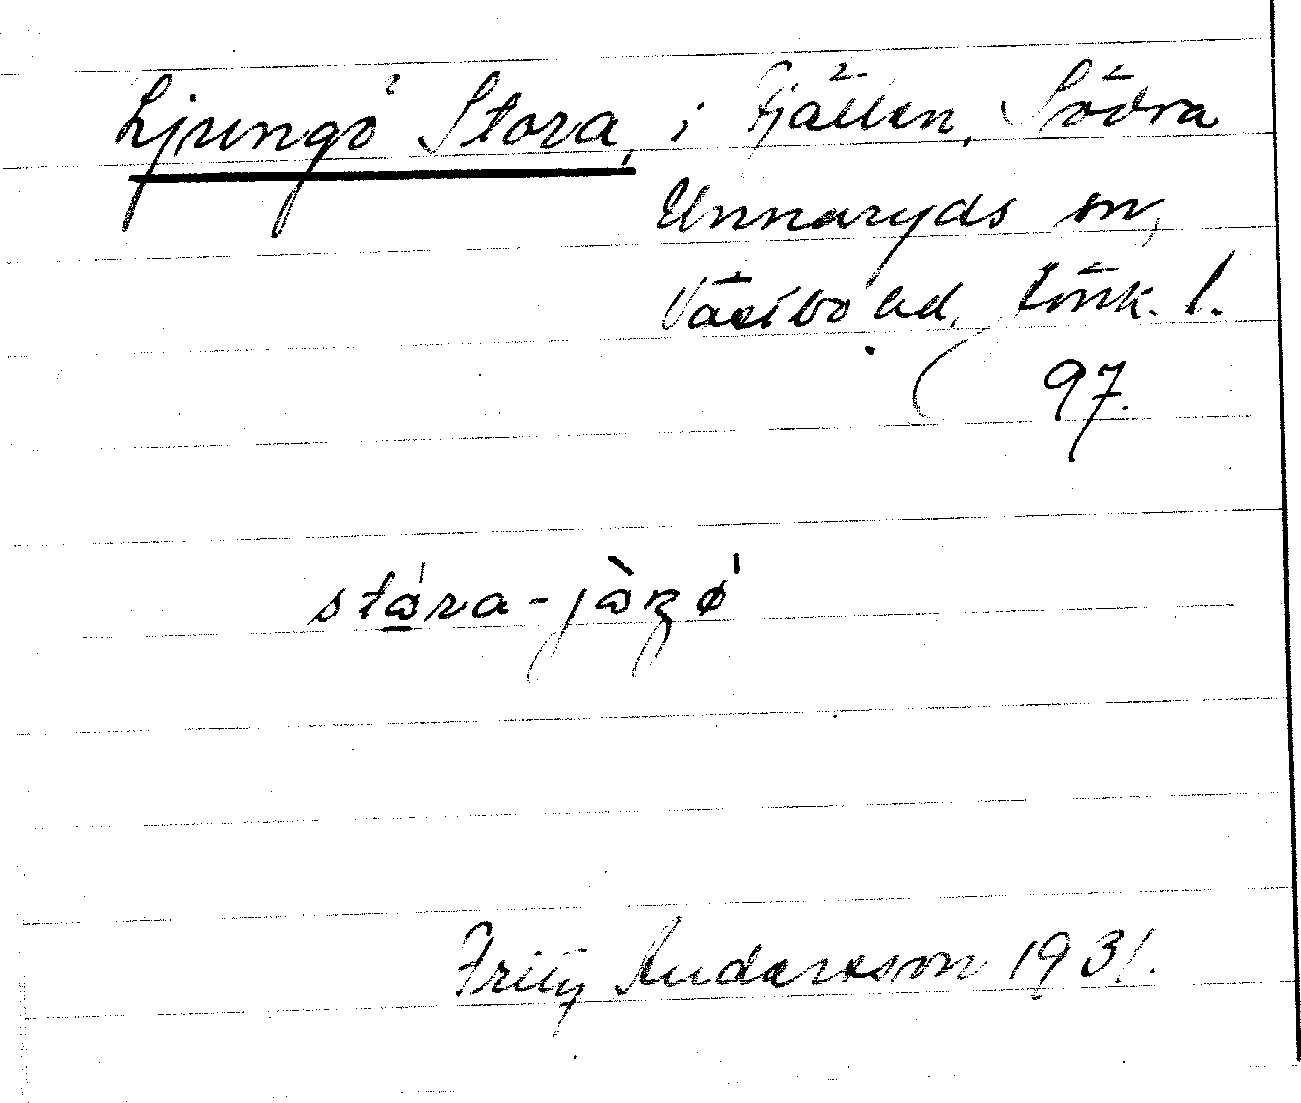 Ljungö Stora, i Fjällen, Södra
Unnaryds sn,
Västbo hd, Jönk. l.
97.
Fritz Andersson 1931.